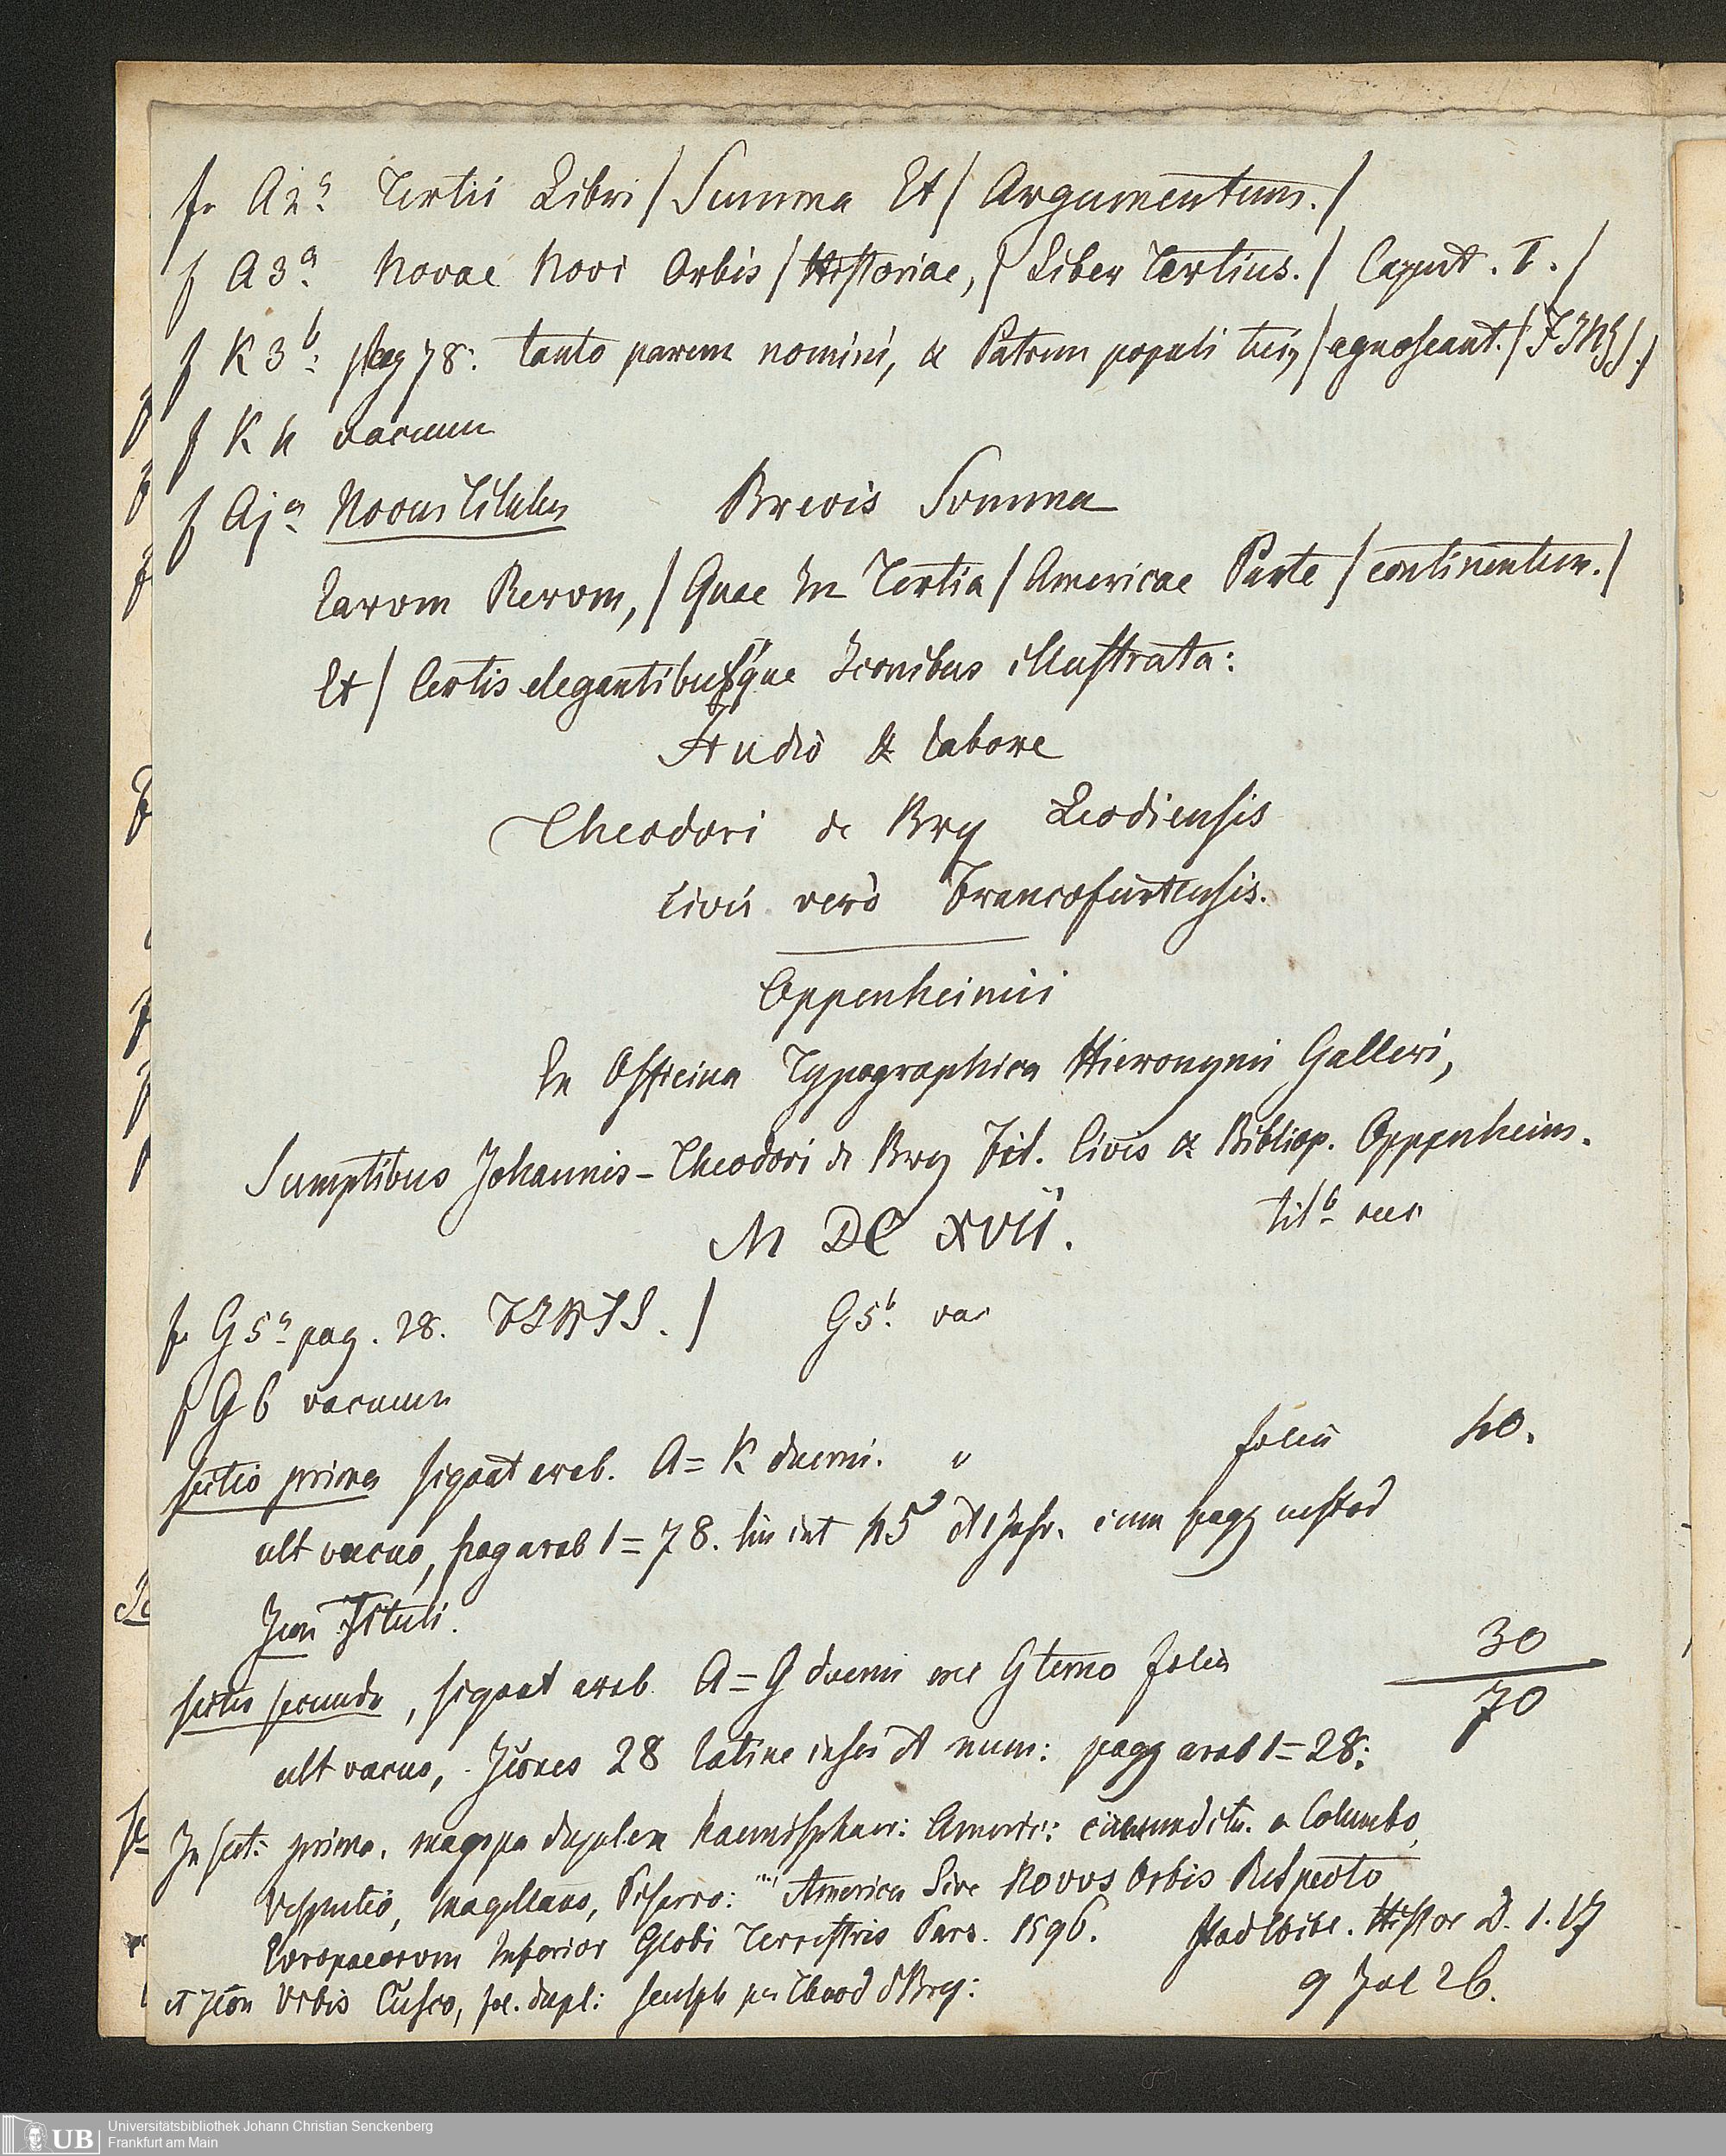 f. A2a Tertii Libri / Summa Et / Argumentum. /
f A3a. Novae Novi Orbis / Historiae, / Liber Tertius. / Caput. I. /
f K3b: pag 78: tanto parem nomini, & Patrem populi tui, / agnoscant. / FINIS. /
f K4 vacuum
f Aja Novus Titulus Brevis Somma
Earom Rerom, / Quae In Tertia / Americae Parte / continentur. /
Et / Certis elegantibusque Iconibus illustrata:
Studio & labore
Theodori de Bry Leodiensis
civis verò Francofurtensis.
Oppenheimii
In Officina Typographica Hieronymi Galleri,
Sumptibus Johannis-Theodori de Bry Fil. Civis & Bibliop. Oppenheim.
M DC XVII. titb vac
f. G5a pag. 28. FINIS. / G5b. vac
f G6 vacuum
sectio prima signat arab. A=K duerni. folia 40.
ult vacuo, pag arab 1=78. 45
Icon Tituli.
sectio secunda, signat arab A=G duerni G terno folia 30
70
ult vacuo, Icones 28 latine num: pagg arab 1=28:
In sect: prima. mappa duplex haemisphaer: Americ: a Columbo,
Vesputio, Magellano, Piserro: "America Sive Novus Orbis Respecto
Evropaeorom Inferior Globi Terrestris Pars. 1596. Stadtbibl. Histor D. 1. 17
et Icon Vrbis Cusco, fol. dupl: sculpt per Theod d Bry: 9 Jul 26.
Universitätsbibliothek Johann Christian Senckenberg
UB Frankfurt am Main